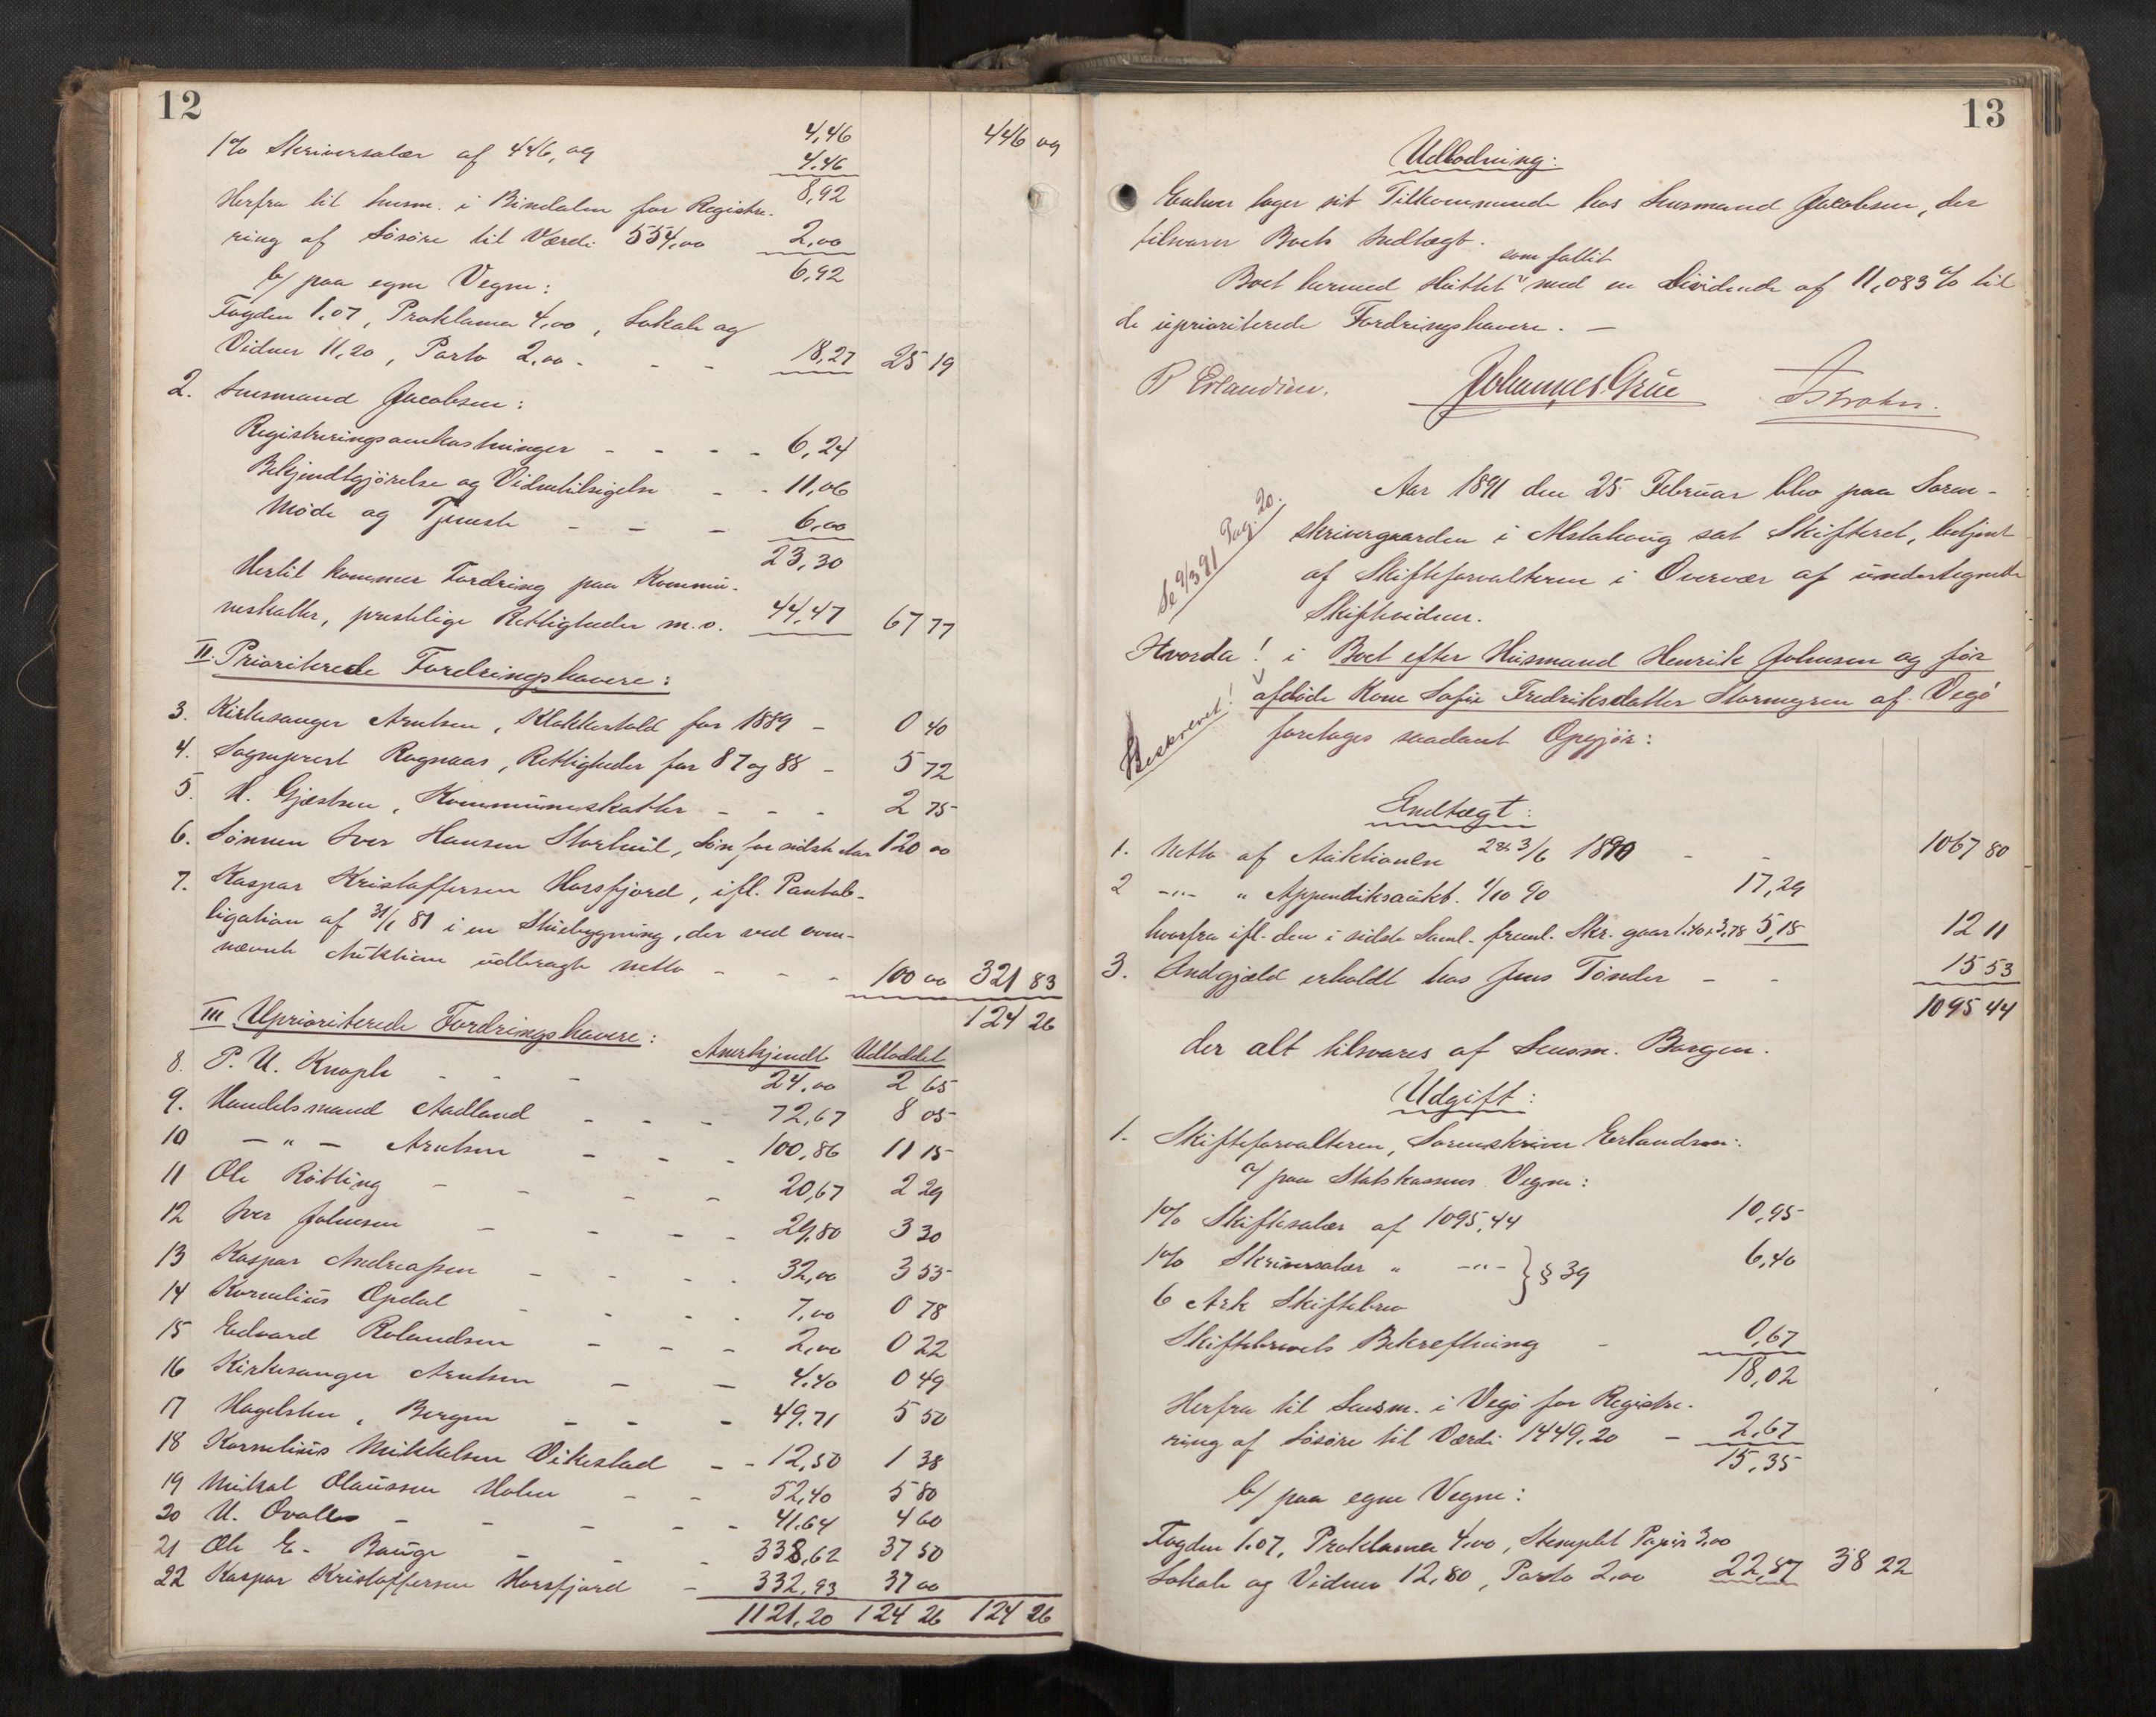 12
4,46 446 09
1% Skriversalær af 446,09 4.46
8,92
Herfra til Lensm. i Bindalen for Registre-
ring af Løsøre til Værdi 554,00 2,00
6,92
b/ paa egne Vegne:
Fogden 1.07, Proklama 4,00, Lokale og
Vidner 11,20, Porto 2,00 - - - 18,27 25 19
2. Lensmand Jacobsen:
Registreringsomkostninger - - - - 6,24
Bekjendtgjörelse og Vidnetilsigelse - - 11,06
Möde og Tjeneste - - - 6,00
23,30
Hertil kommer Fordring paa Kommu-
neskatter, prestelige Rettigheder m.v. 44,47 67 77
II. Prioriterede Fordringshavere:
3. Kirkesanger Arntsen, Klokkertold for 1889 - 0 40
4. Sogneprest Rognaas, Rettigheder for 87 og 88 - 5 72
5. H. Gjæstsen, Kommuneskatter - - - 2 75
6. Sönnen Iver Hansen Storheil, Lön for sidste Aar 120 00
7. Kaspar Kristoffersen Horsfjord, ifl. Pantob-
ligation af 31/1 81 i en Stuebygning, der ved oven-
nævnte Auktion udbragte netto - - - 100 00 321 83
124 26
III Uprioriterede Fordringshavere: Anerkjendt Udloddet
8. P. U. Knoph - - - 24,00 2 65
9. Handelsmand Aadland - - - 72,67 8 05
10 - " - Arntsen - - - 100,86 11 15
11 Ole Rötting - - - - 20,67 2 29
12 Iver Johnsen - - - - 29,80 3 30
13 Kaspar Andreassen - - - - 32,00 3 55
14 Kornelius Opdal - - - 7,00 0 78
15 Edvard Rolandsen - - - 2,00 0 22
16 Kirkesanger Arntsen - - 4.40 0 49
17 Hagelsten, Bergen - - - 49.71 5 50
18 Kornelius Mikkelsen Vikestad - - 12,50 1 38
19 Mikal Olaussen Holm - - 52,40 5 80
20 U. Qvale - - - - - 41.64 4 60
21 Ole E. Bauge - - - 338,62 37 50
22 Kaspar Kristoffersen Horsfjord - 332,93 37 00
1121,20 124 26 124 26
13
Udlodning:
Enhver tager sit Tilkommende hos Lensmand Jacobsen, der
tilsvarer Boets Indtægt.
som fallit
Boet hermed sluttet med en Dividende af 11,083 % til
de uprioriterede Fordringshavere. -
P Erlandsen. Johannes Grüe
Aar 1891 den 25 Februar blev paa Soren-
skrivergaarden i Alstahoug sat Skifteret, betjent
af Skifteforvalteren i Overvær af undertegnede
Skiftevidner.
Se 9/3 91 Pag. 20.
Hvorda! i Boet efter Husmand Henrik Johnsen og før
afdøde Kone Sofie Fredriksdatter Stormyren af Vegö
foretages saadant Opgjör:
Beskrevet!
Indtægt:
1. Netto af Auktionen 28. 3/6 1890 - - 1067 80
2 -"- " Appendiksaukt. 1/10 90 17,29
hvorfra ifl. den i sidste Saml. freml. Skr. gaar 1.40+3,78 5,18 12 11
3. Indgjæld erholdt hos Jens Tönder - - 15 53
1095 44
der alt tilsvares af Lensm. Borgen.
Udgift:
1. Skifteforvalteren, Sorenskriver Erlandsen:
a/ paa Statskassens Vegne:
1% Skiftesalær af 1095,44 10,95
1% Skriversalær " -"- } § 39 6,40
6 Ark Skiftebrev
Skiftebrevets Bekreftning - 0,67
18,02
Herfra til Lensm. i Vegö for Registre-
ring af Løsøre til Værdi 1449,20 - 2,67
15,35
b/ paa egne Vegne:
Fogden 1.07, Proklama 4,00, Stemplet Papir 3,00
Lokale og Vidner 12,80, Porto 2,00 22,87 38 22